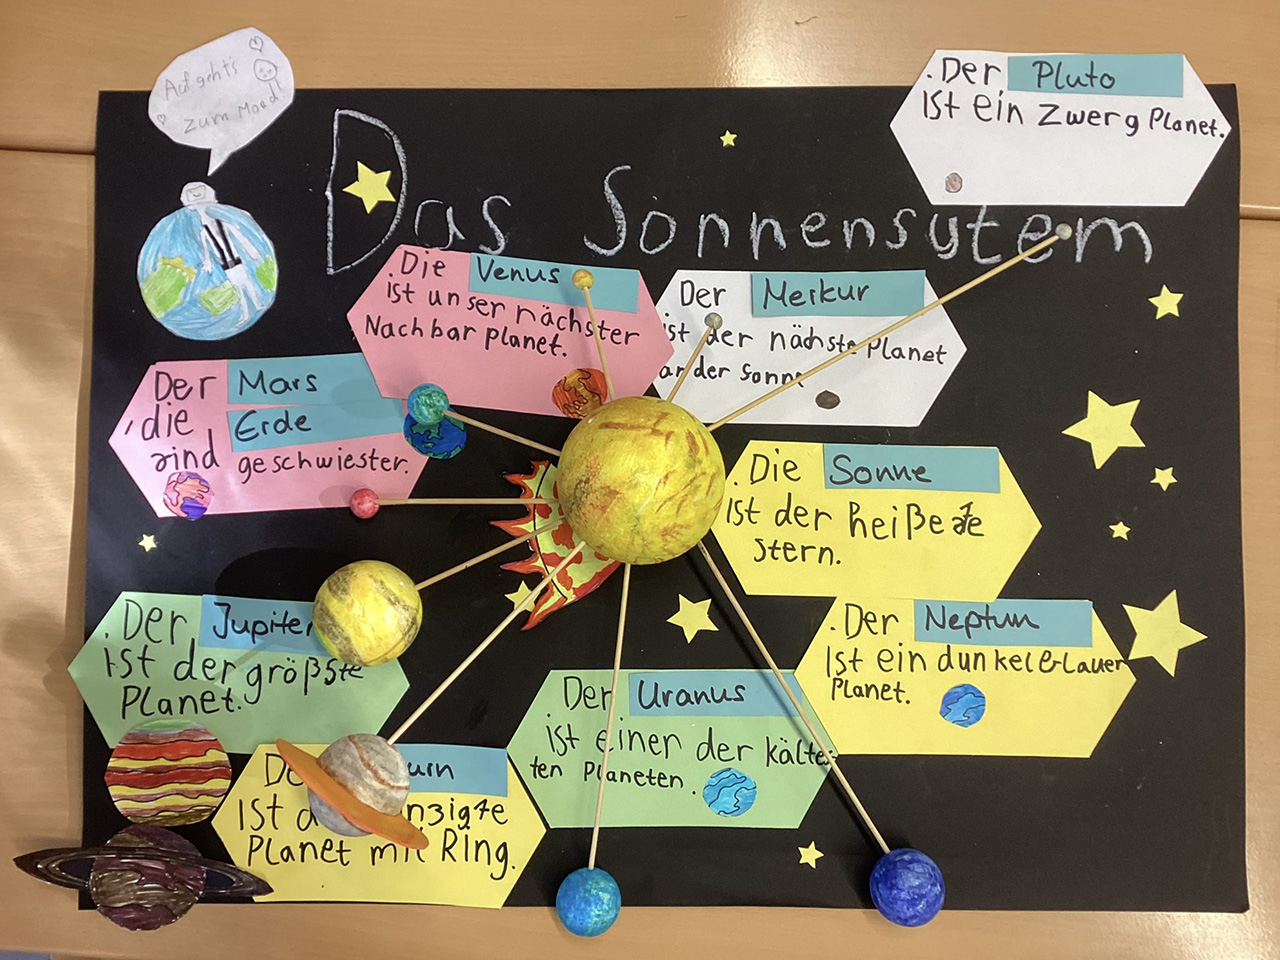 Auf geht's
zum Mond!
Das Sonnensytem
Der Pluto
ist ein Zwerg Planet.
Die Venus
ist unser nächster
Nachbar planet.
Der Merkur
ist der nächste Planet
an der Sonne
Der Mars
die Erde
sind geschwiester.
Die Sonne
ist der heißeste
stern.
Der Jupiter
ist der größste
Planet.
Der Neptun
ist ein dunkelblauer
Planet.
Der Uranus
ist einer der kälte-
ten Planeten.
Ist
Planet mit Ring.